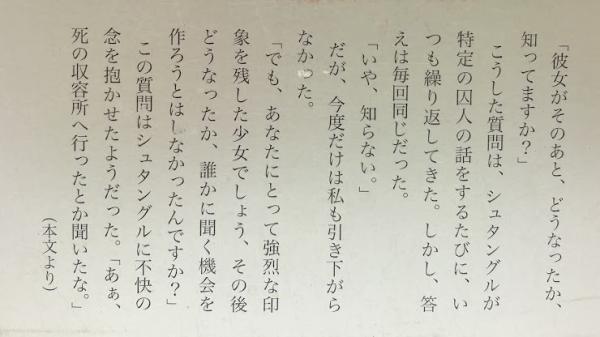 「彼女がそのあと、どうなったか、
知ってますか？」
こうした質問は、シュタングルが
特定の囚人の話をするたびに、い
つも繰り返してきた。しかし、答
えは毎回同じだった。
「いや、知らない。」
だが、今度だけは私も引き下がら
なかった。
「でも、あなたにとって強烈な印
象を残した少女でしょう、その後
どうなったか、誰かに聞く機会を
作ろうとはしなかったんですか？」
この質問はシュタングルに不快の
念を抱かせたようだった。「あぁ、
死の収容所へ行ったとか聞いたな。」
（本文より）